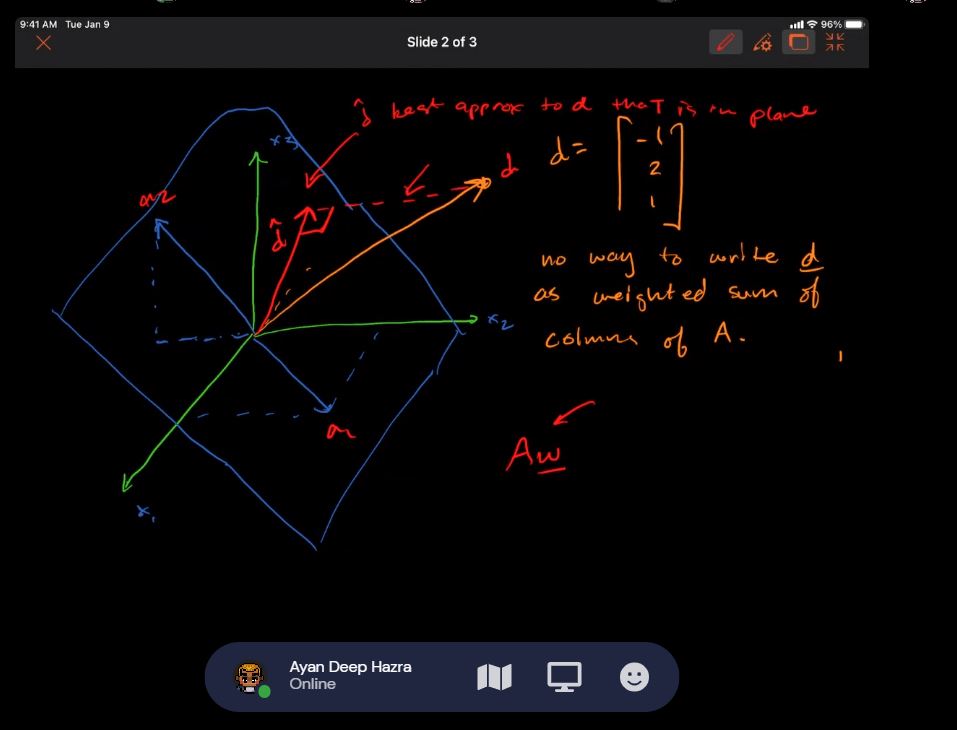 9:41 AM Tue Jan 9
96%
Slide 2 of 3
d̂ best approx to d that is in plane
x3
d
d =
-1
2
1
a2
d̂
no way to write d
as weighted sum of
columns of A.
x2
a1
Aw
x1
Ayan Deep Hazra
Online